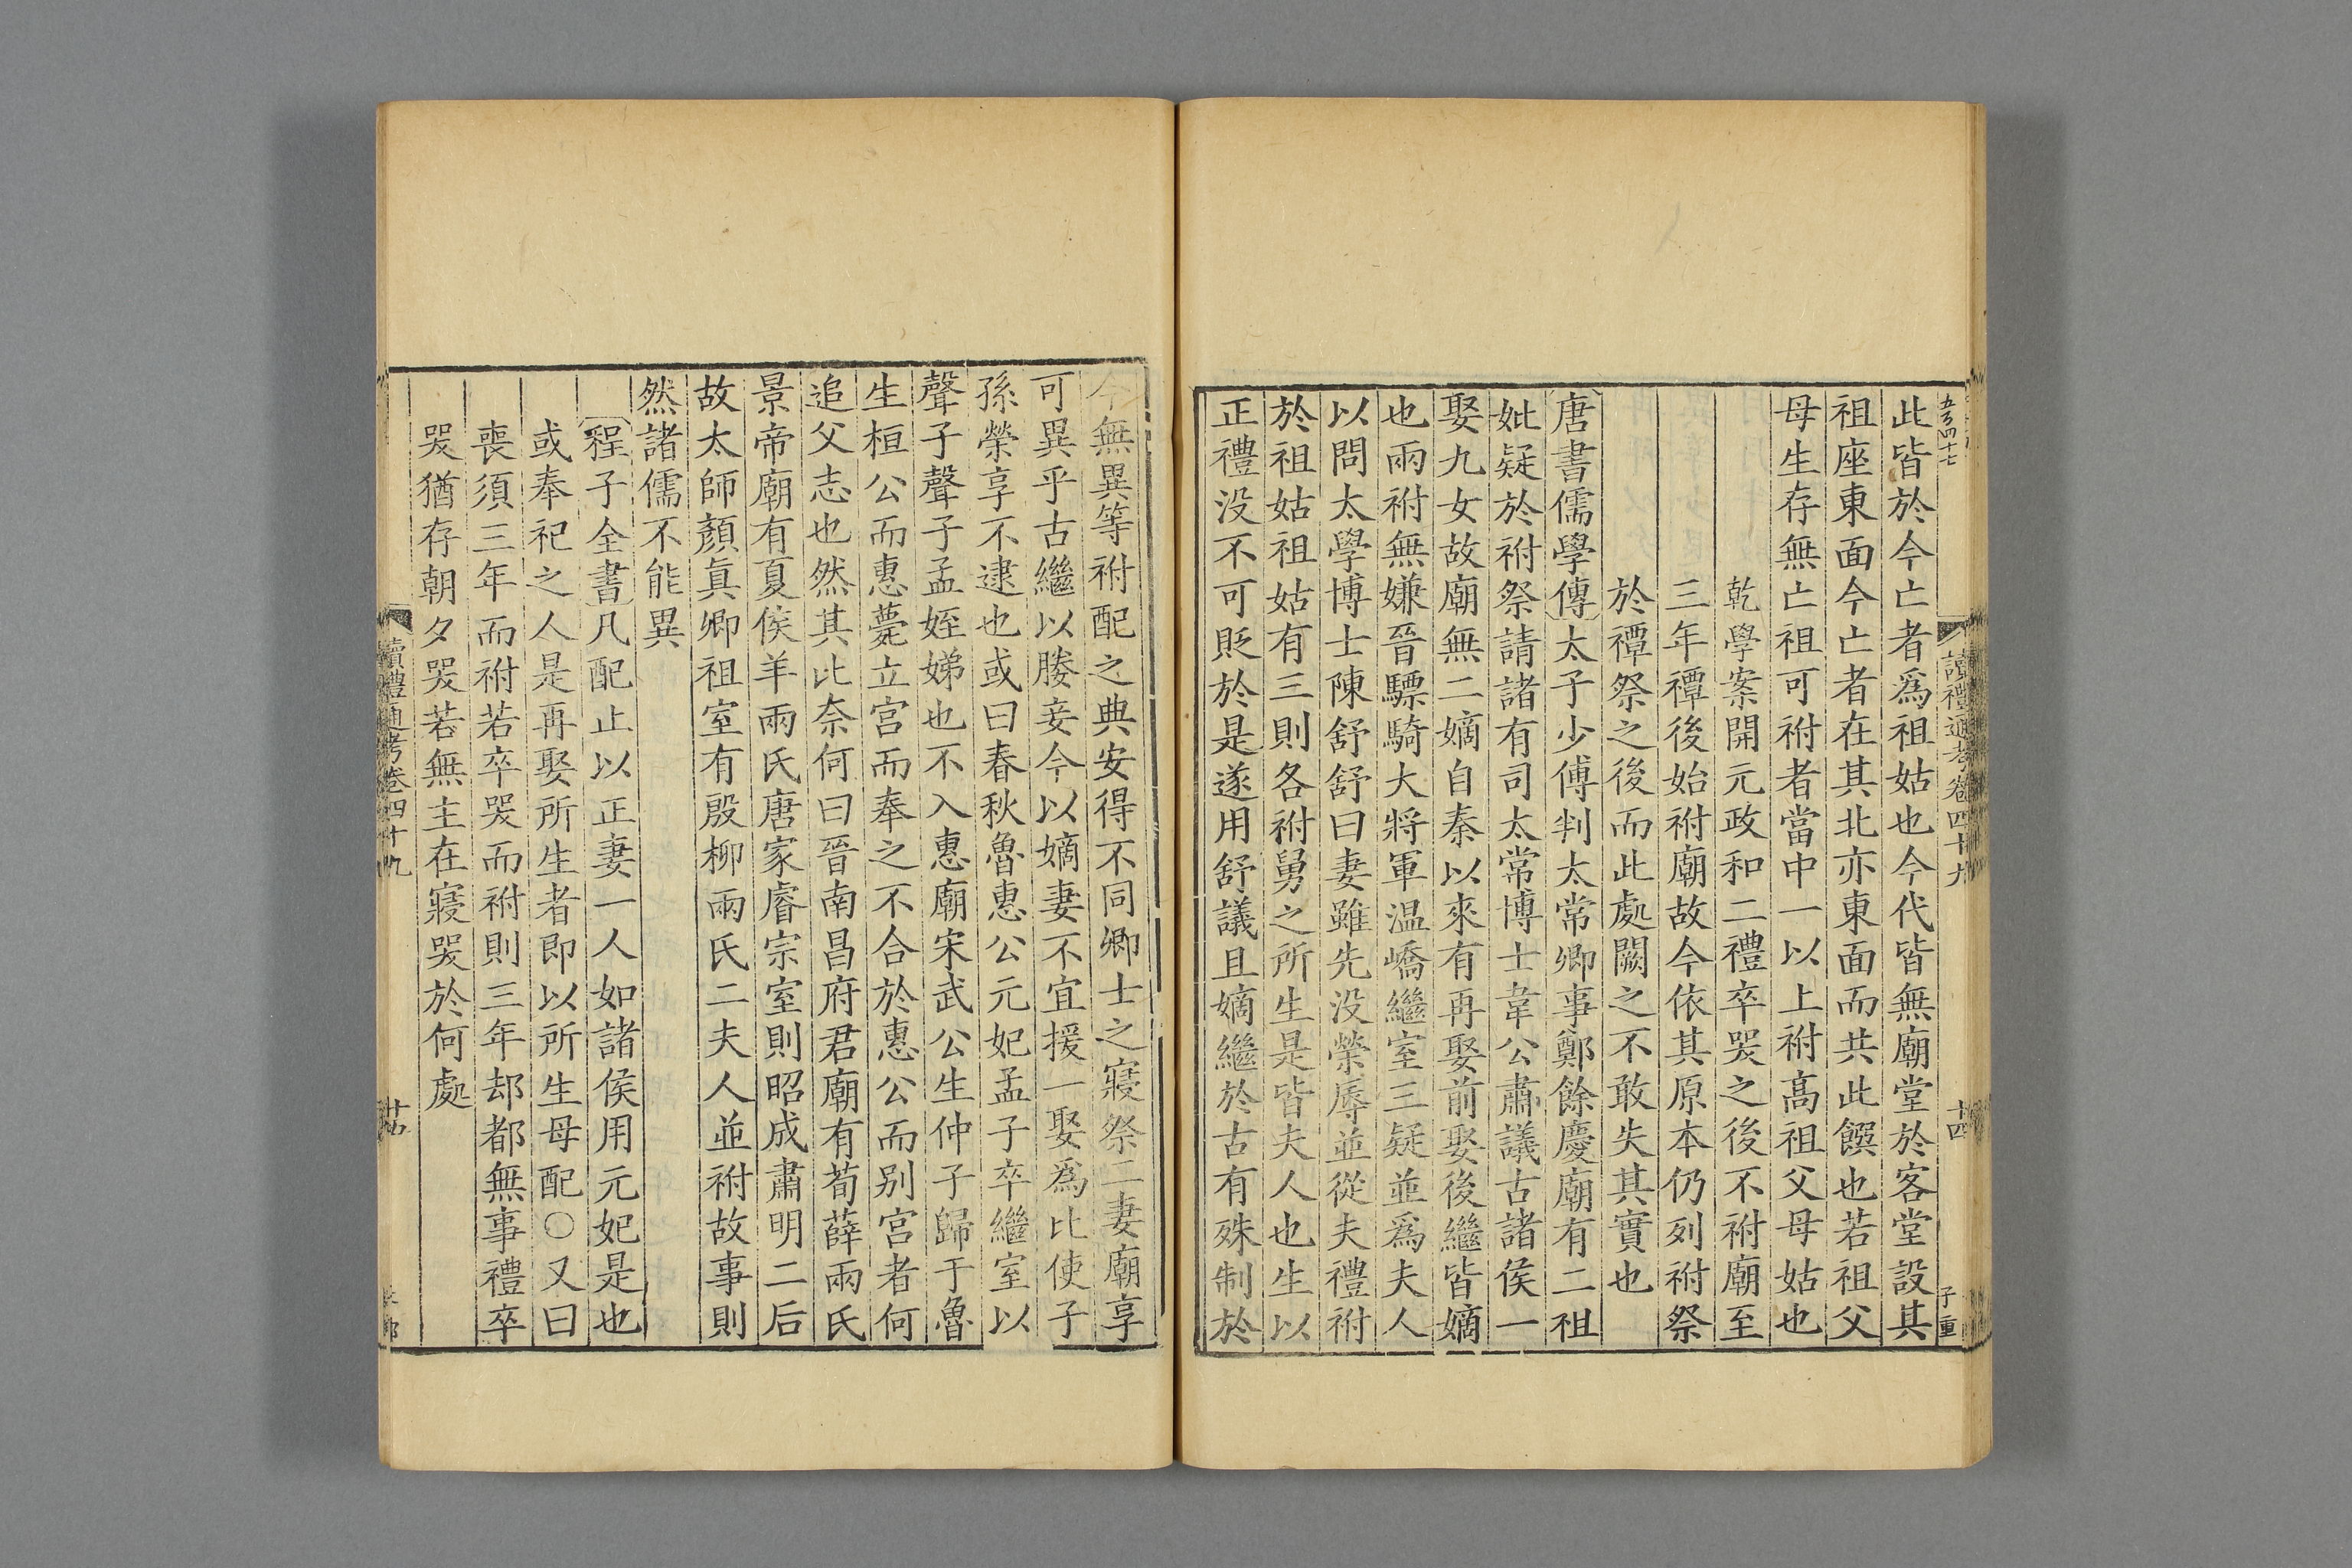 五百四十七
讀禮通考卷四十九
十四
子重
此皆於今亡者爲祖姑也今代皆無廟堂於客堂設其
祖座東面今亡者在其北亦東面而共此饌也若祖父
母生存無亡祖可祔者當中一以上祔高祖父母姑也
乾學案開元政和二禮卒哭之後不祔廟至
三年禫後始祔廟故今依其原本仍列祔祭
於禫祭之後而此處闕之不敢失其實也
唐書儒學傳太子少傅判太常卿事鄭餘慶廟有二祖
妣疑於祔祭請諸有司太常博士韋公肅議古諸侯一
娶九女故廟無二嫡自秦以來有再娶前娶後繼皆嫡
也兩祔無嫌晉驃騎大將軍温嶠繼室三疑並爲夫人
以問太學博士陳舒舒曰妻雖先没榮辱並從夫禮祔
於祖姑祖姑有三則各祔舅之所生是皆夫人也生以
正禮没不可貶於是遂用舒議且嫡繼於古有殊制於
今無異等祔配之典安得不同卿士之寢祭二妻廟享
可異乎古繼以媵妾今以嫡妻不宜援一娶爲比使子
孫榮享不逮也或曰春秋魯惠公元妃孟子卒繼室以
聲子聲子孟姪娣也不入惠廟宋武公生仲子歸于魯
生桓公而惠薨立宮而奉之不合於惠公而别宮者何
追父志也然其比奈何曰晉南昌府君廟有荀薛兩氏
景帝廟有夏侯羊兩氏唐家睿宗室則昭成肅明二后
故太師顏眞卿祖室有殷柳兩氏二夫人並祔故事則
然諸儒不能異
程子全書凡配止以正妻一人如諸侯用元妃是也
或奉祀之人是再娶所生者即以所生母配○又曰
喪須三年而祔若卒哭而祔則三年却都無事禮卒
哭猶存朝夕哭若無主在寢哭於何處
讀禮通考卷四十九